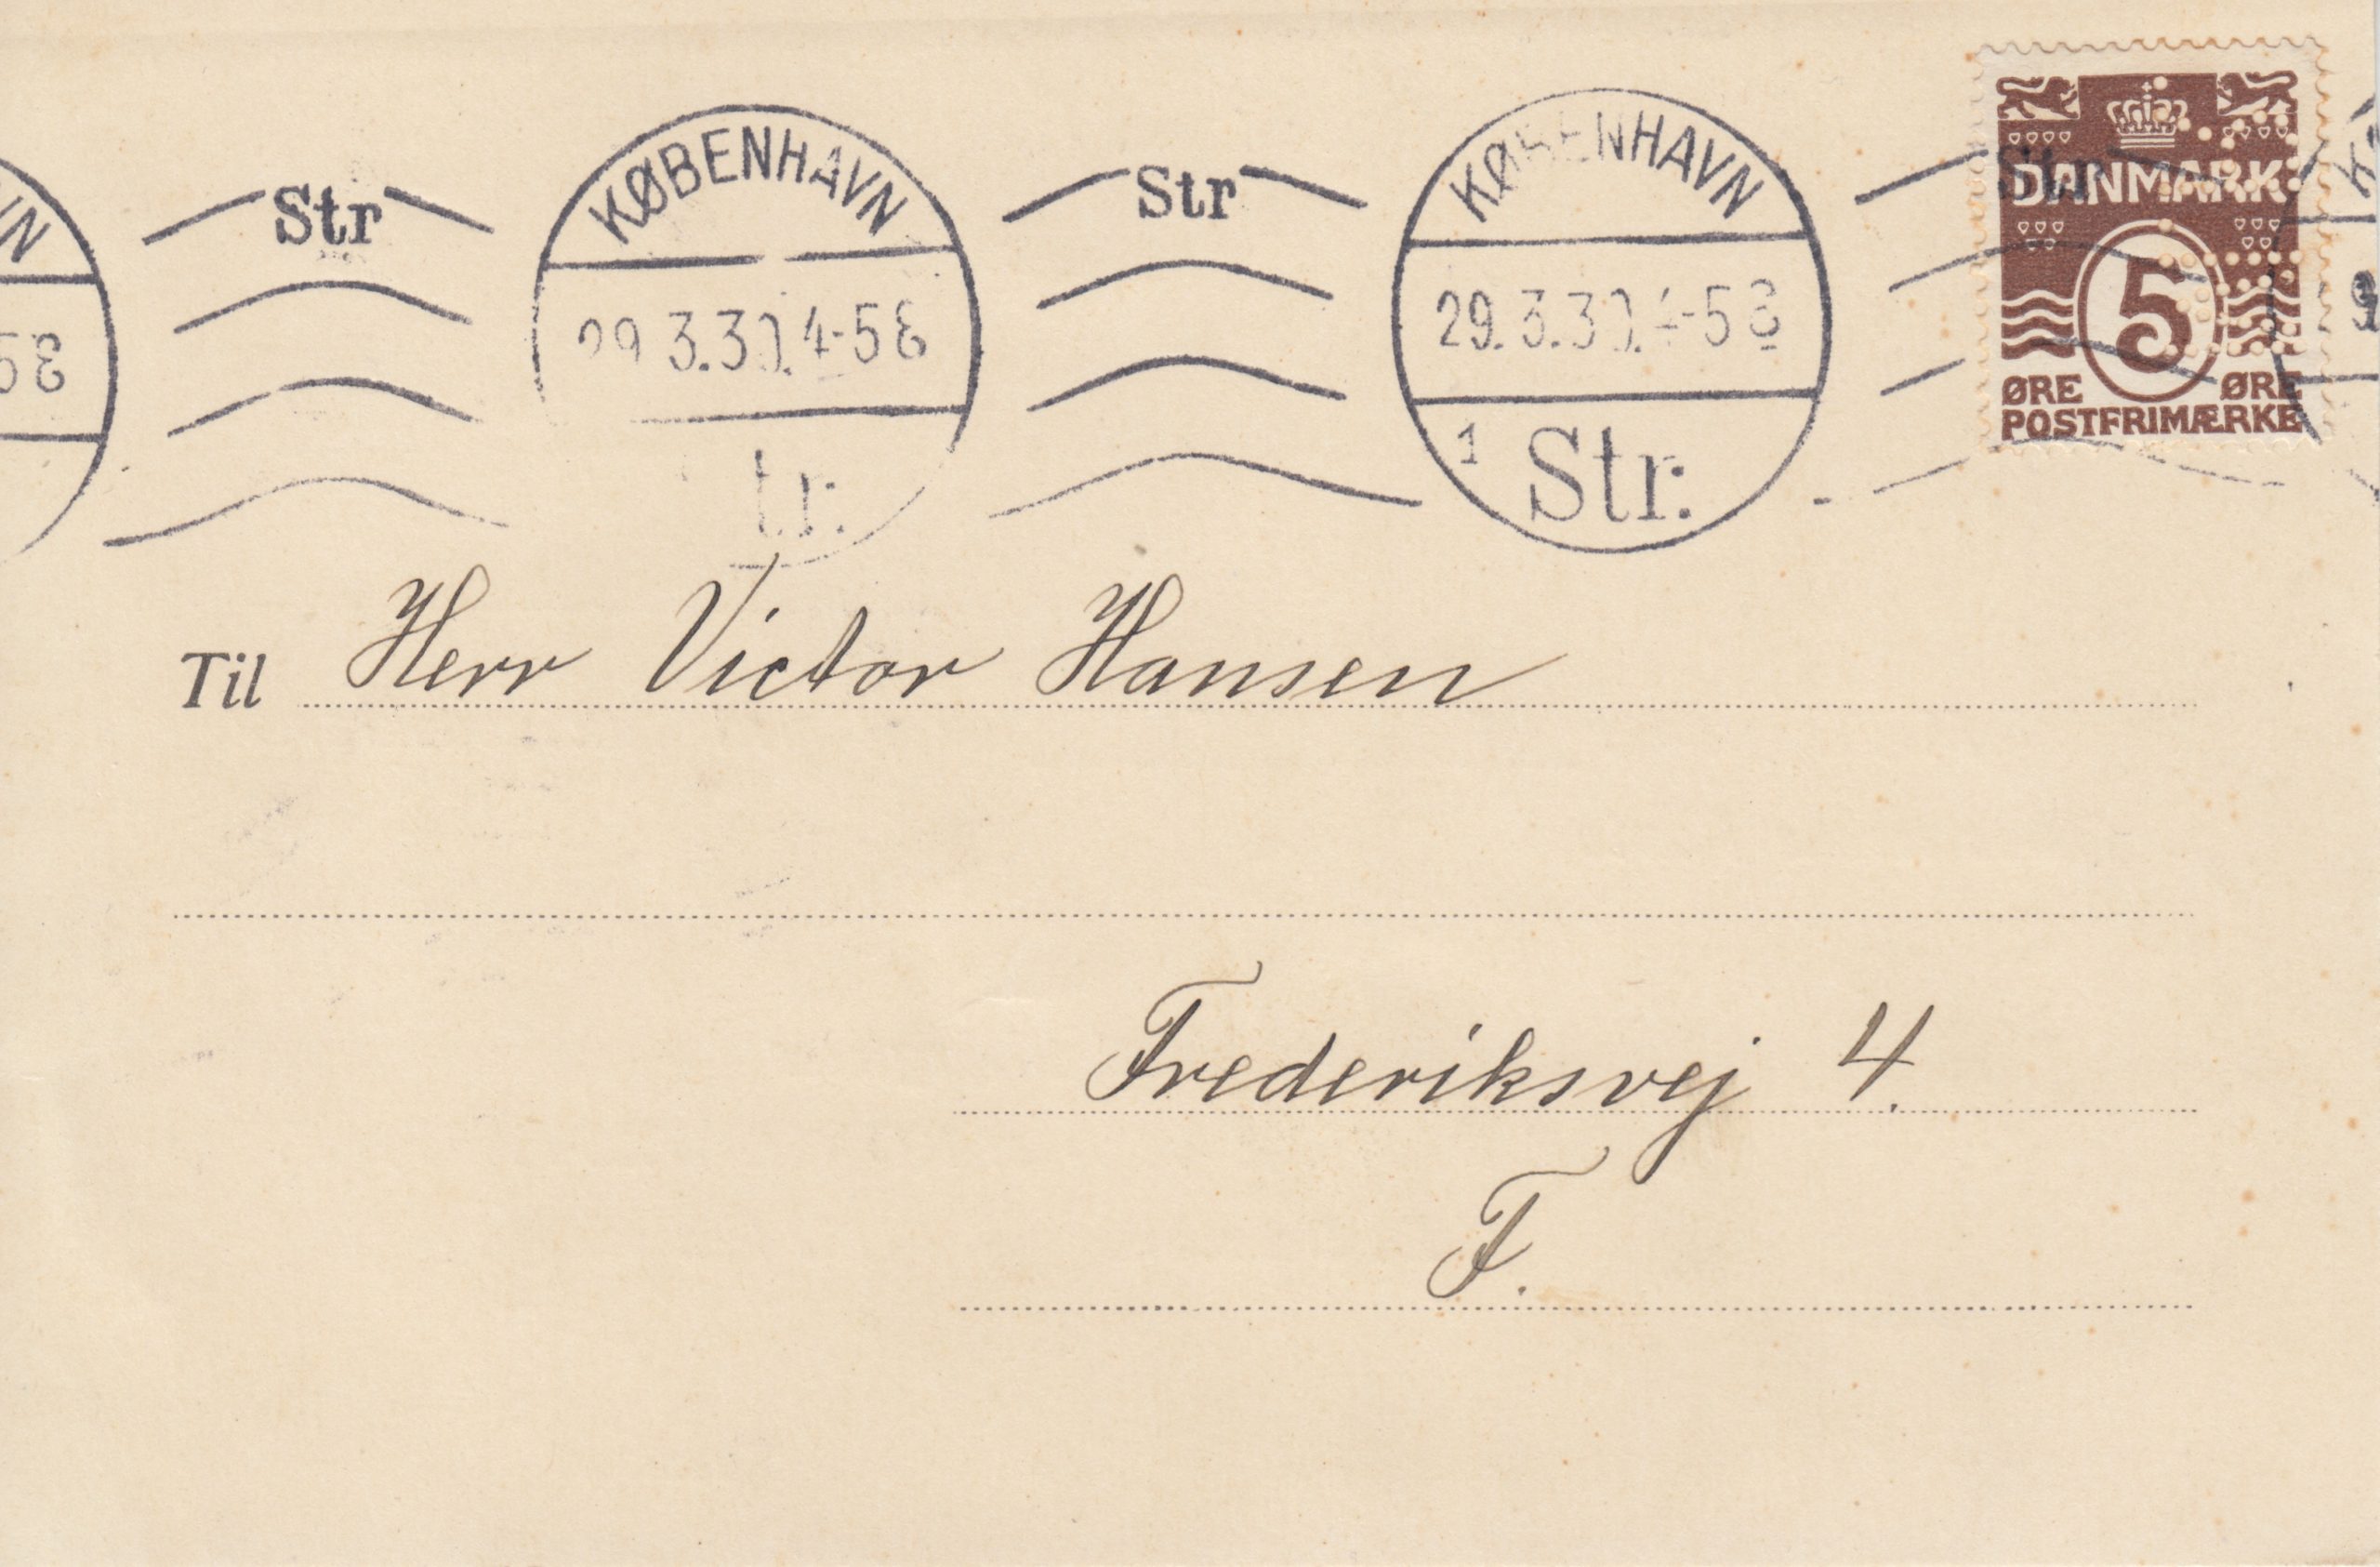 KØBENHAVN
KØBENHAVN
Str
Str
Str
DANMARK
29.3.30. 4-5 E
29.3.30. 4-5
5
ØRE ØRE
POSTFRIMÆRKE
tr:
1 Str:
Til Herr Victor Hansen
Frederiksvej 4.
F.